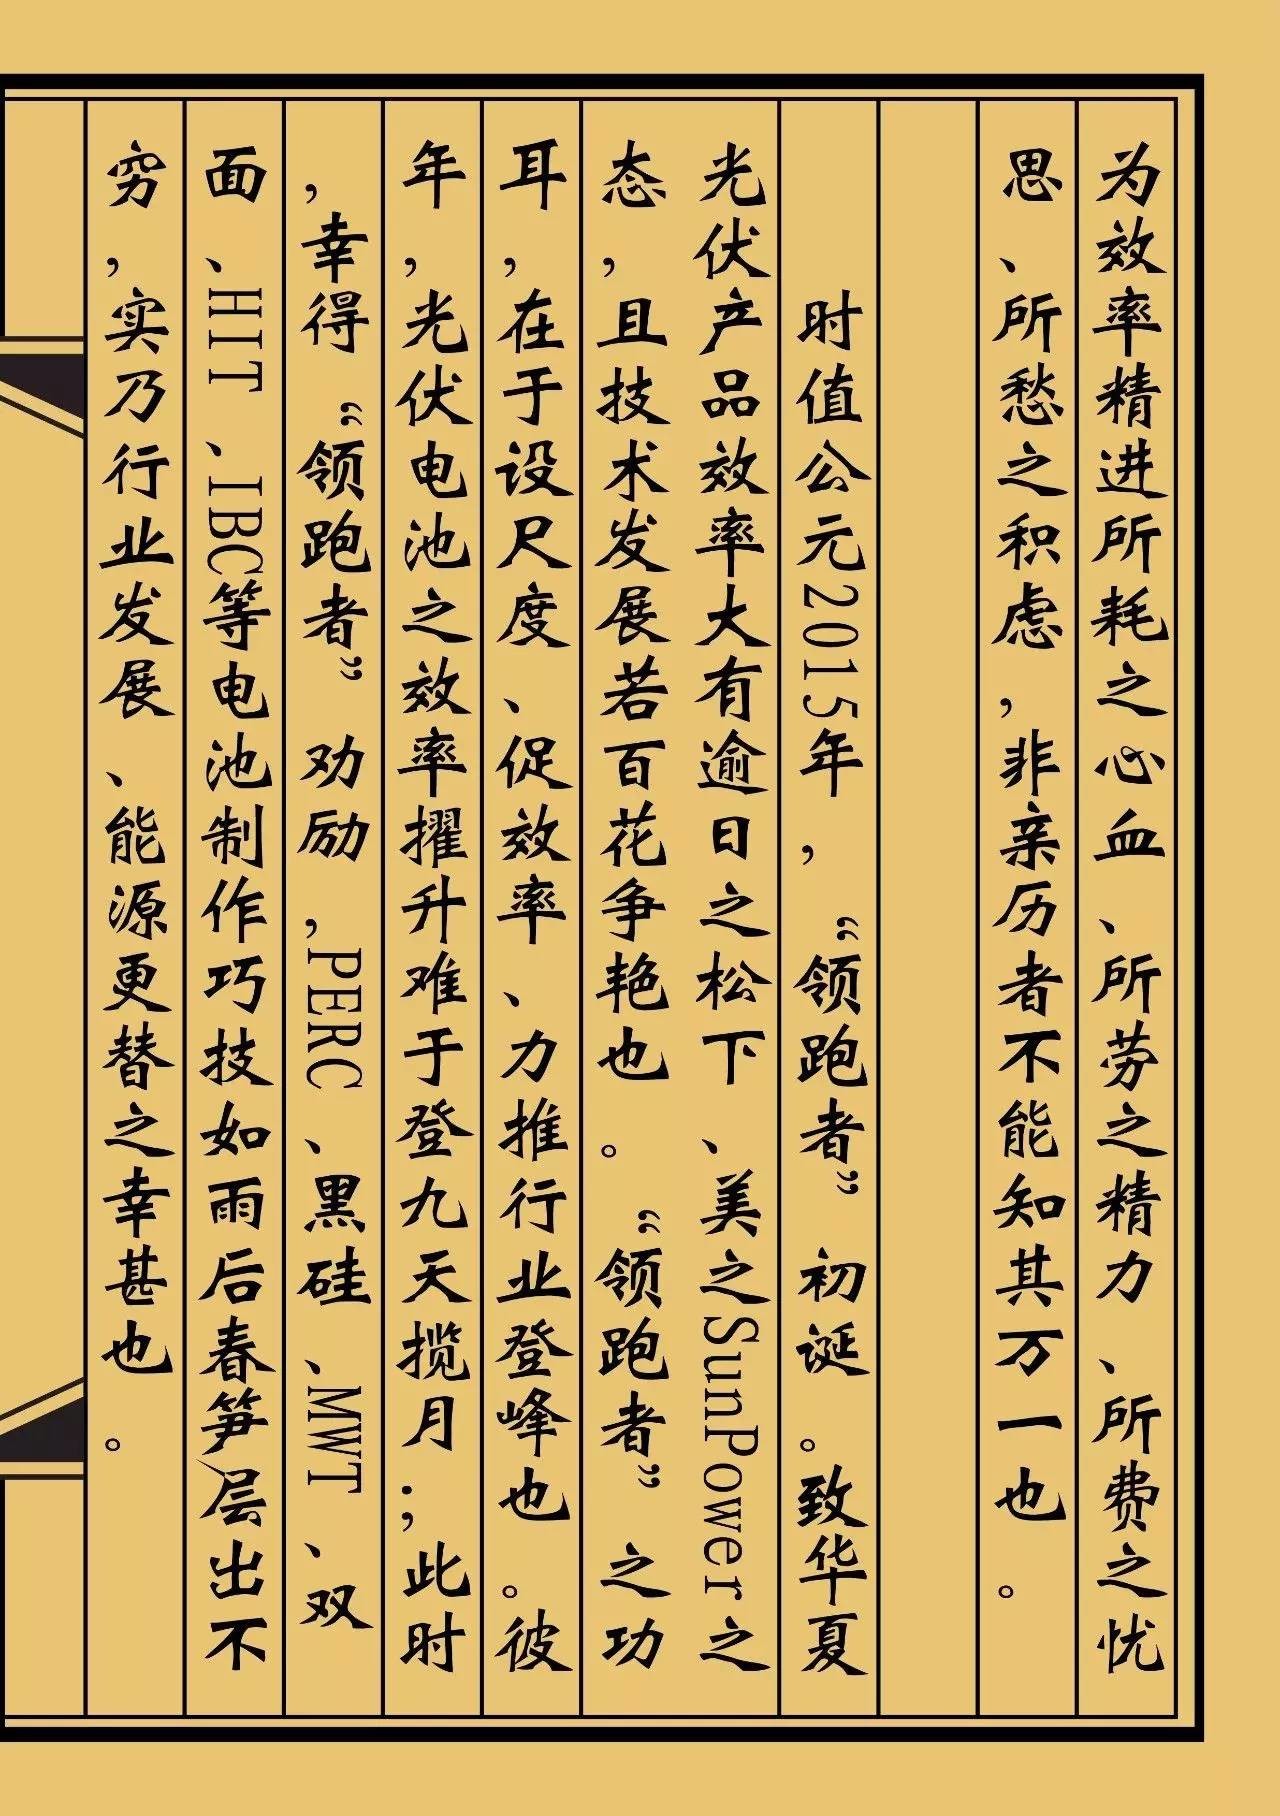 为效率精进所耗之心血、所劳之精力、所费之忧
思、所愁之积虑,非亲历者不能知其万一也。
时值公元2015年,“领跑者”初诞。致华夏
光伏产品效率大有逾日之松下、美之SunPower之
态,且技术发展若百花争艳也。“领跑者”之功
耳,在于设尺度、促效率、力推行业登峰也。彼
年,光伏电池之效率擢升难于登九天揽月;此时
,幸得“领跑者”劝励,PERC、黑硅、MWT、双
面、HIT、IBC等电池制作巧技如雨后春笋层出不
穷,实乃行业发展、能源更替之幸甚也。